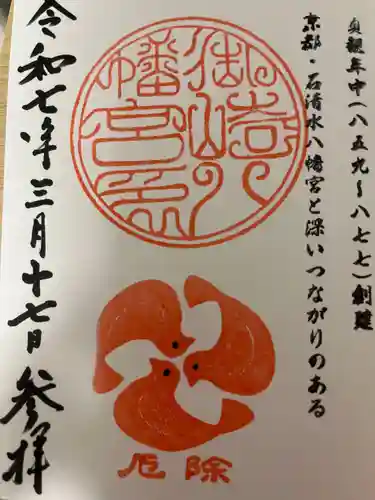 貞観年中(八五九〜八七七)創建
京都・石清水八幡宮と深いつながりのある
御崎八
幡宮
令和七年三月十七日 参拝
厄除